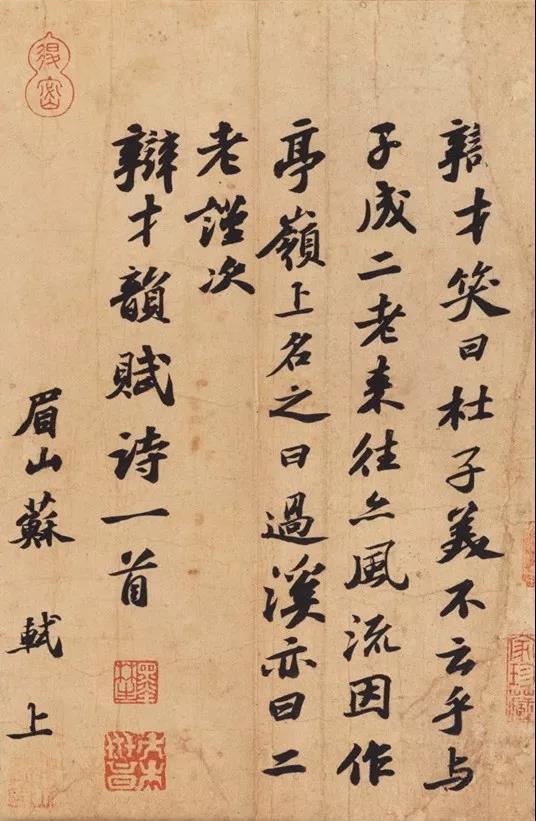 辯才笑曰杜子美不云乎与
子成二老来往亦風流因作
亭嶺上名之曰過溪亦曰二
老謹次
辯才韻賦詩一首
眉山蘇軾上
得密